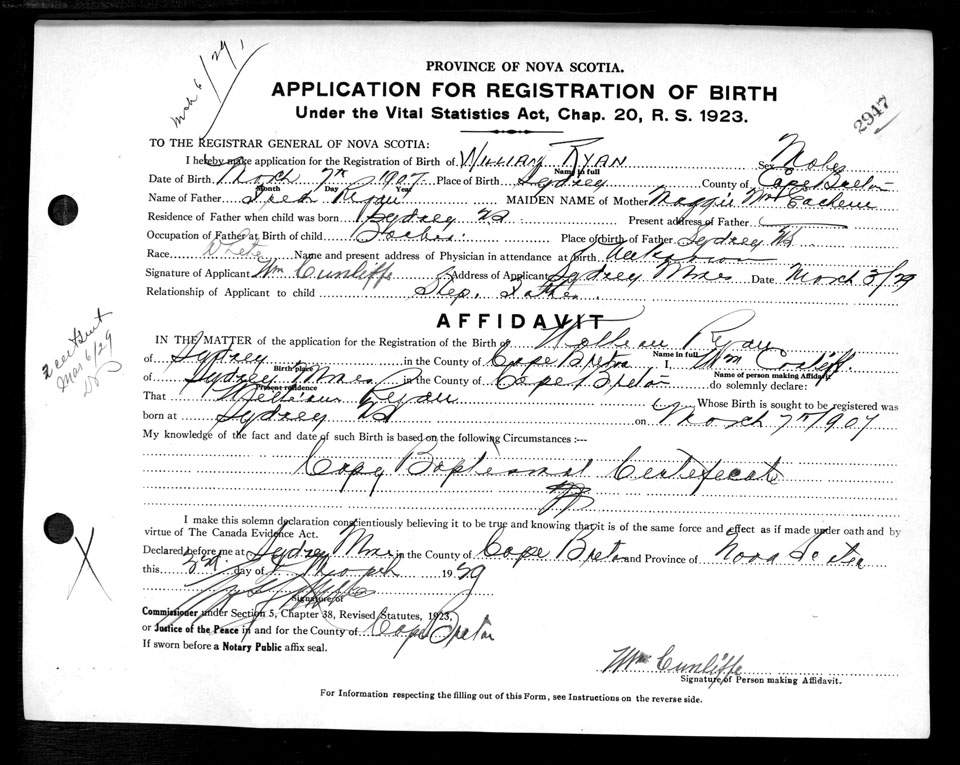 Mch 6/29
PROVINCE OF NOVA SCOTIA.
APPLICATION FOR REGISTRATION OF BIRTH
Under the Vital Statistics Act, Chap. 20, R. S. 1923.
2947
TO THE REGISTRAR GENERAL OF NOVA SCOTIA:
I hereby make application for the Registration of Birth of William Ryan Sex Male
Name in full
Date of Birth March 7th 1907 Place of Birth Sydney County of Cape Breton
Month Day Year
Name of Father Ryan MAIDEN NAME of Mother Maggie McEachern
Residence of Father when child was born Sydney NS Present address of Father
Occupation of Father at Birth of child Place of birth of Father Sydney NS
Race White Name and present address of Physician in attendance at birth Unknown
Signature of Applicant Wm Cunliffe Address of Applicant Sydney Mines Date March 3/29
Relationship of Applicant to child Step. Father
AFFIDAVIT
IN THE MATTER of the application for the Registration of the Birth of William Ryan
Name in full
of Sydney in the County of Cape Breton I, Wm
Birth place Name of person making Affidavit
of Sydney Mines in the County of Cape Breton do solemnly declare:
Present residence
That William Ryan Whose Birth is sought to be registered was
born at Sydney NS on March 7th 1907
My knowledge of the fact and date of such Birth is based on the following Circumstances :--
Copy Baptismal Certificate
I make this solemn declaration conscientiously believing it to be true and knowing that it is of the same force and effect as if made under oath and by
virtue of The Canada Evidence Act.
Declared before me at Sydney Mines in the County of Cape Breton and Province of Nova Scotia
this day of March 1929
Signature of
Commissioner under Section 5, Chapter 38, Revised Statutes, 1923,
or Justice of the Peace in and for the County of Cape Breton
If sworn before a Notary Public affix seal.
Wm Cunliffe
Signature of Person making Affidavit.
For Information respecting the filling out of this Form, see Instructions on the reverse side.
Mar 6/29
X